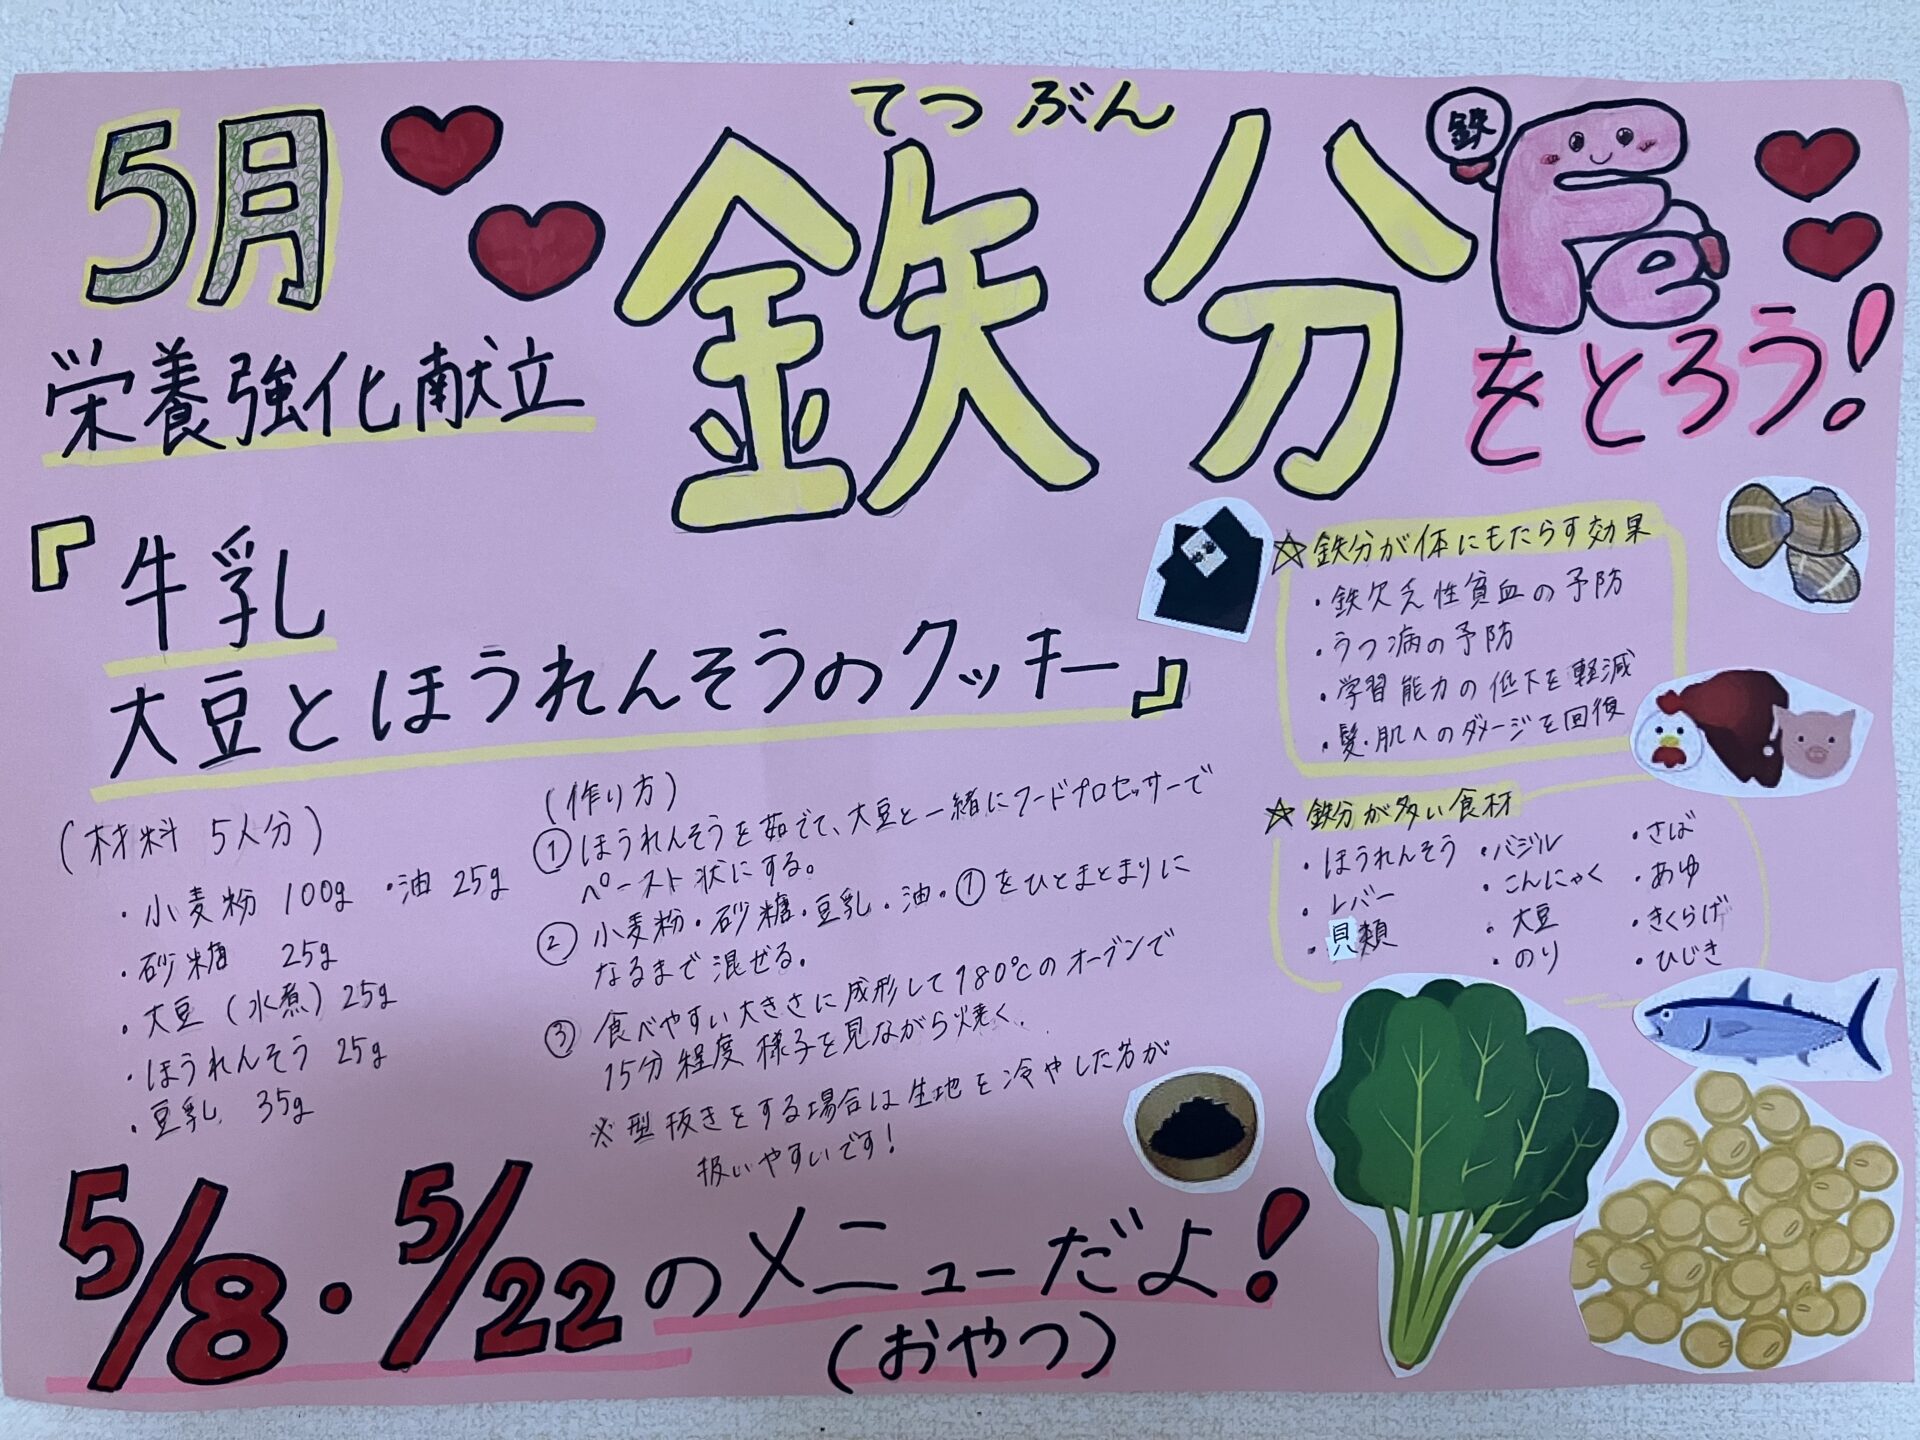 5月
てつぶん
鉄分
鉄
Fe
をとろう!
栄養強化献立
『牛乳
大豆とほうれんそうのクッキー』
(材料 5人分)
・小麦粉 100g ・油 25g
・砂糖 25g
・大豆(水煮) 25g
・ほうれんそう 25g
・豆乳 35g
(作り方)
①ほうれんそうを茹でて、大豆と一緒にフードプロセッサーで
ペースト状にする。
②小麦粉・砂糖・豆乳・油・①をひとまとまりに
なるまで混ぜる。
③食べやすい大きさに成形して180℃のオーブンで
15分程度様子を見ながら焼く.
※型抜きをする場合は生地を冷やした方が
扱いやすいです!
☆鉄分が体にもたらす効果
・鉄欠乏性貧血の予防
・うつ病の予防
・学習能力の低下を軽減
・髪・肌へのダメージを回復
☆鉄分が多い食材
・ほうれんそう
・レバー
・貝類
・バジル
・こんにゃく
・大豆
・のり
・さば
・あゆ
・きくらげ
・ひじき
5/8・5/22のメニューだよ!
(おやつ)